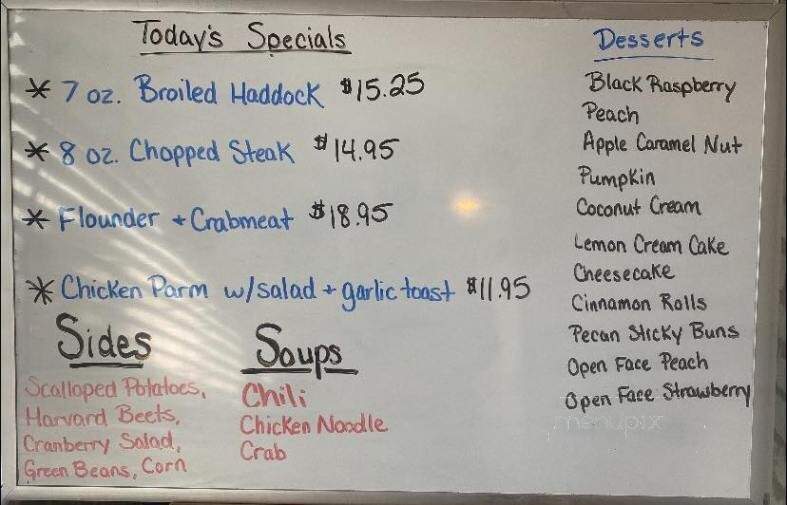 Today's Specials
* 7 oz. Broiled Haddock $15.25
* 8 oz. Chopped Steak $14.95
* Flounder + Crabmeat $18.95
* Chicken Parm w/salad + garlic toast $11.95
Sides
Scalloped Potatoes,
Harvard Beets,
Cranberry Salad,
Green Beans, Corn
Soups
Chili
Chicken Noodle
Crab
Desserts
Black Raspberry
Peach
Apple Caramel Nut
Pumpkin
Coconut Cream
Lemon Cream Cake
Cheesecake
Cinnamon Rolls
Pecan Sticky Buns
Open Face Peach
Open Face Strawberry
menupix